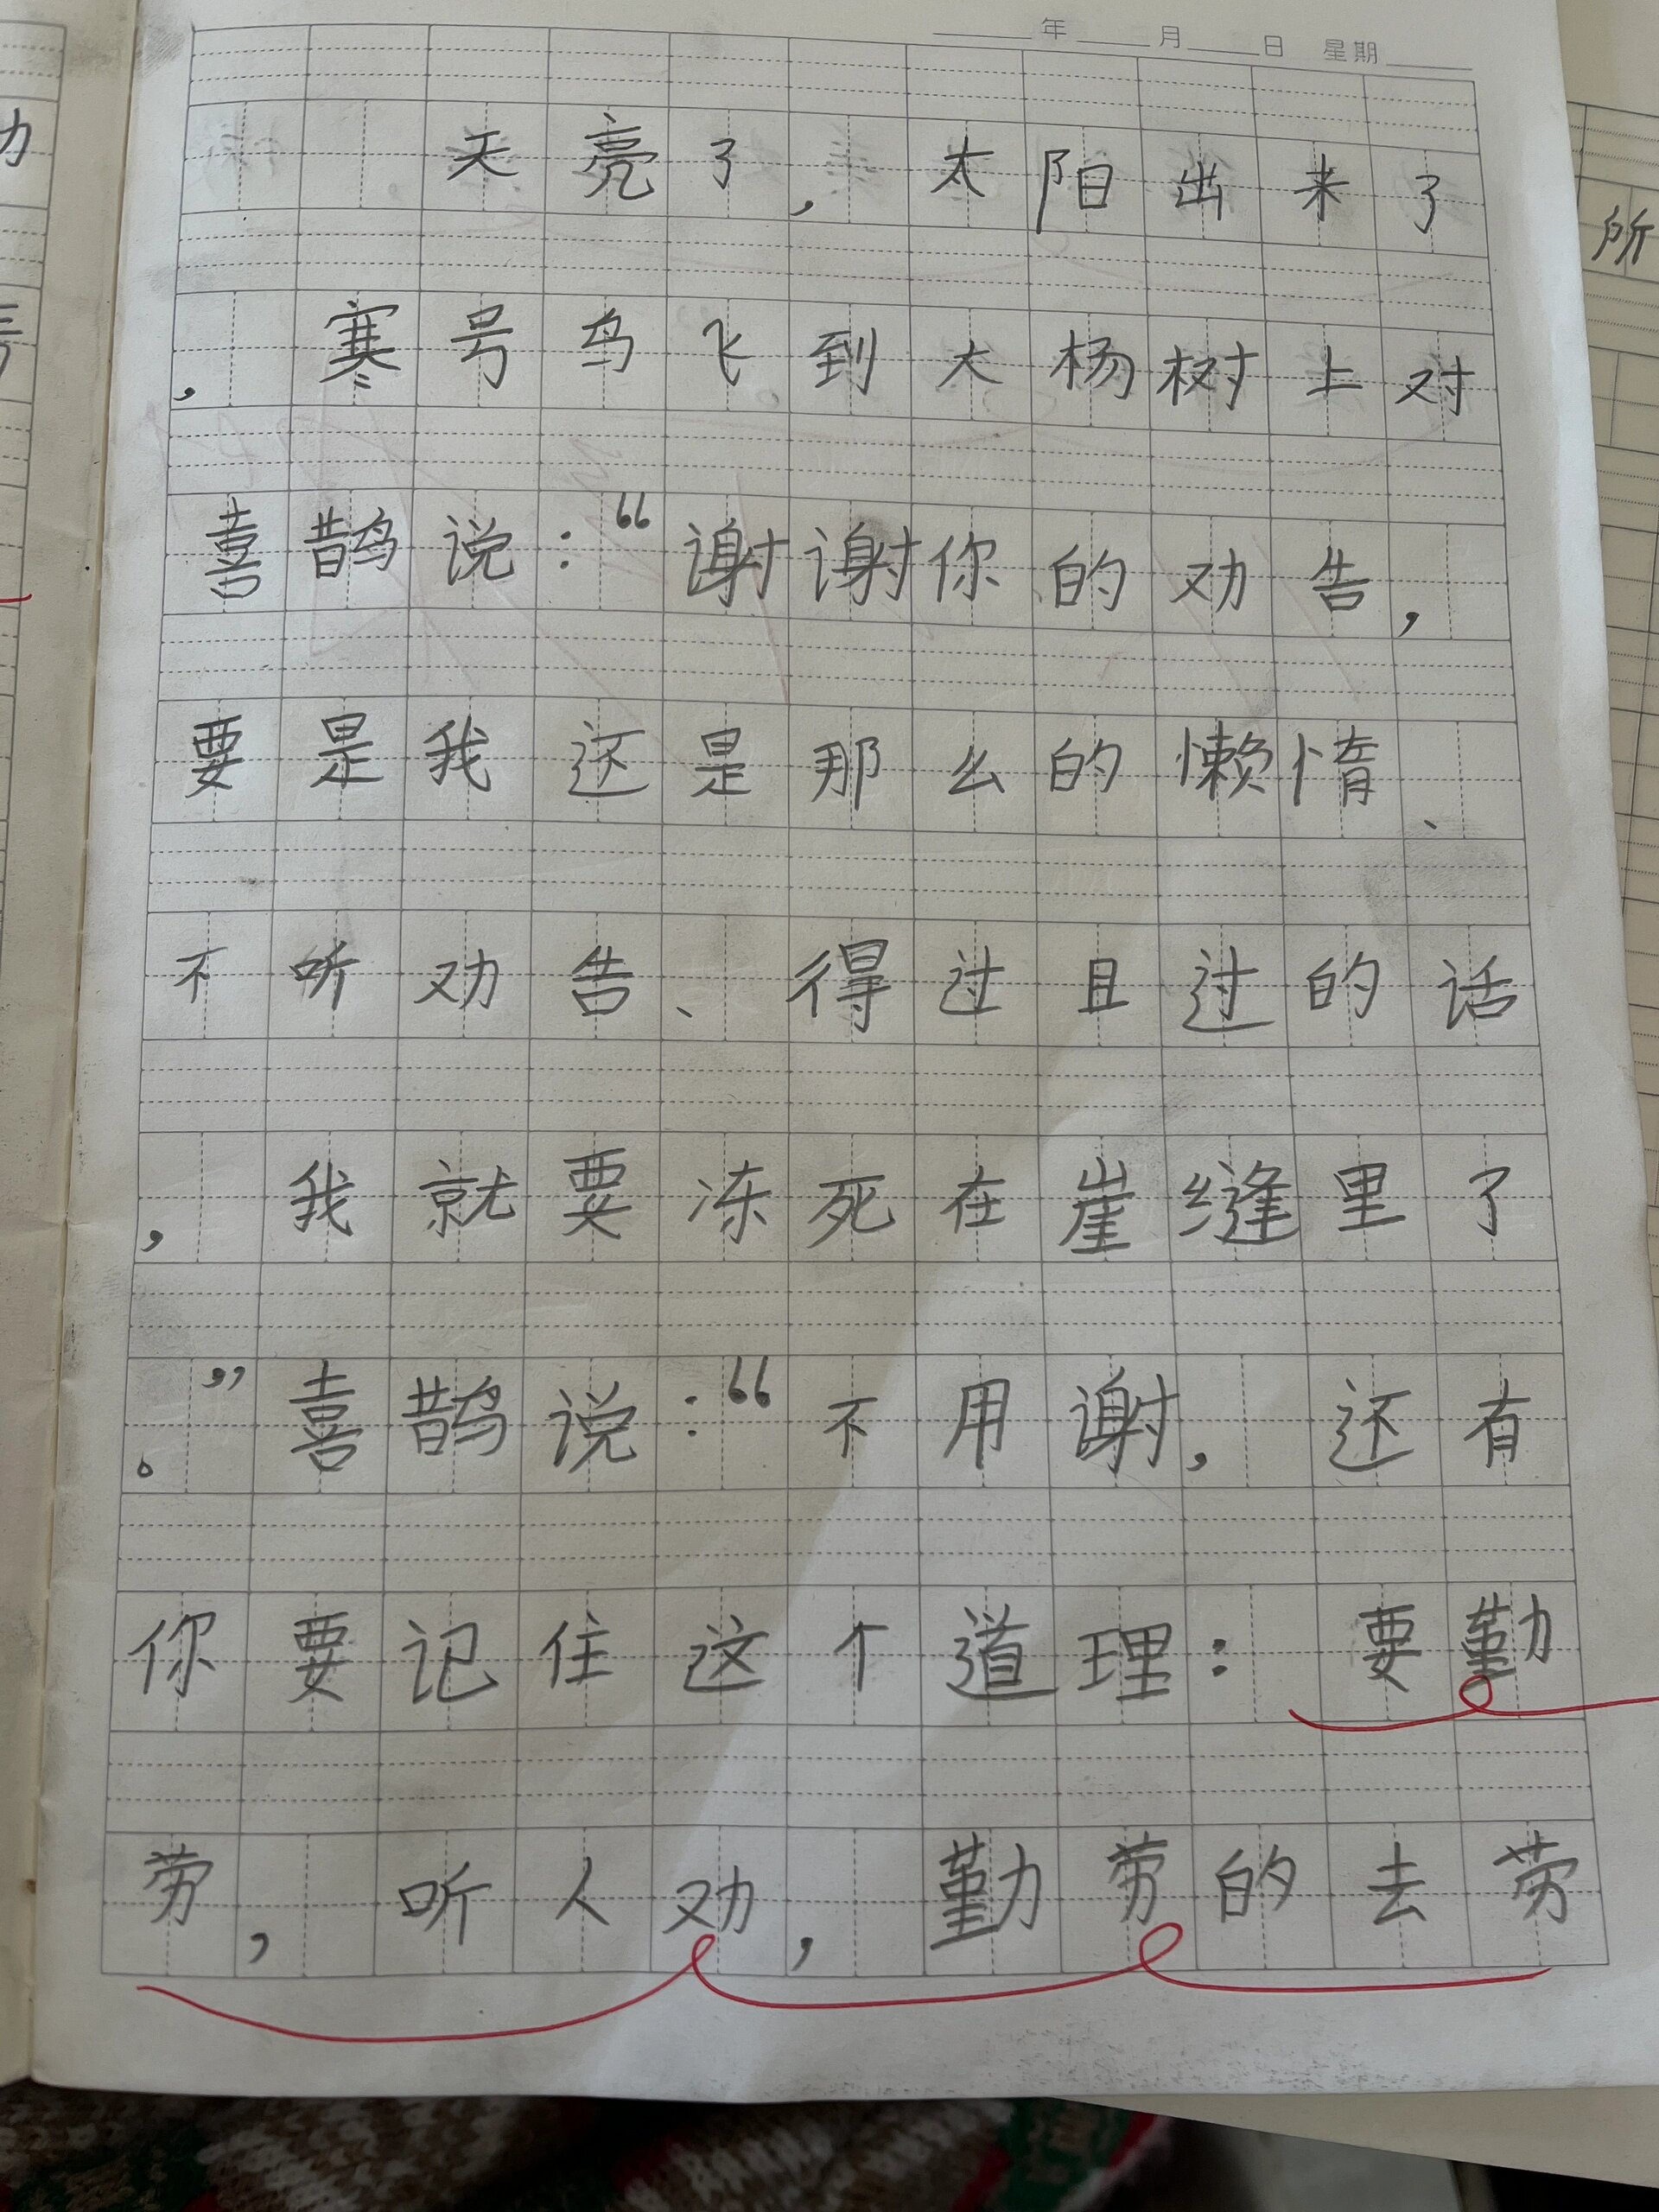 年 月 日 星期
天亮了，太阳出来了
，寒号鸟飞到大杨树上对
喜鹊说：“谢谢你的劝告，
要是我还是那么的懒惰、
不听劝告、得过且过的话
，我就要冻死在崖缝里了
。”喜鹊说：“不用谢，还有
你要记住这个道理：要勤
劳，听人劝，勤劳的去劳
所